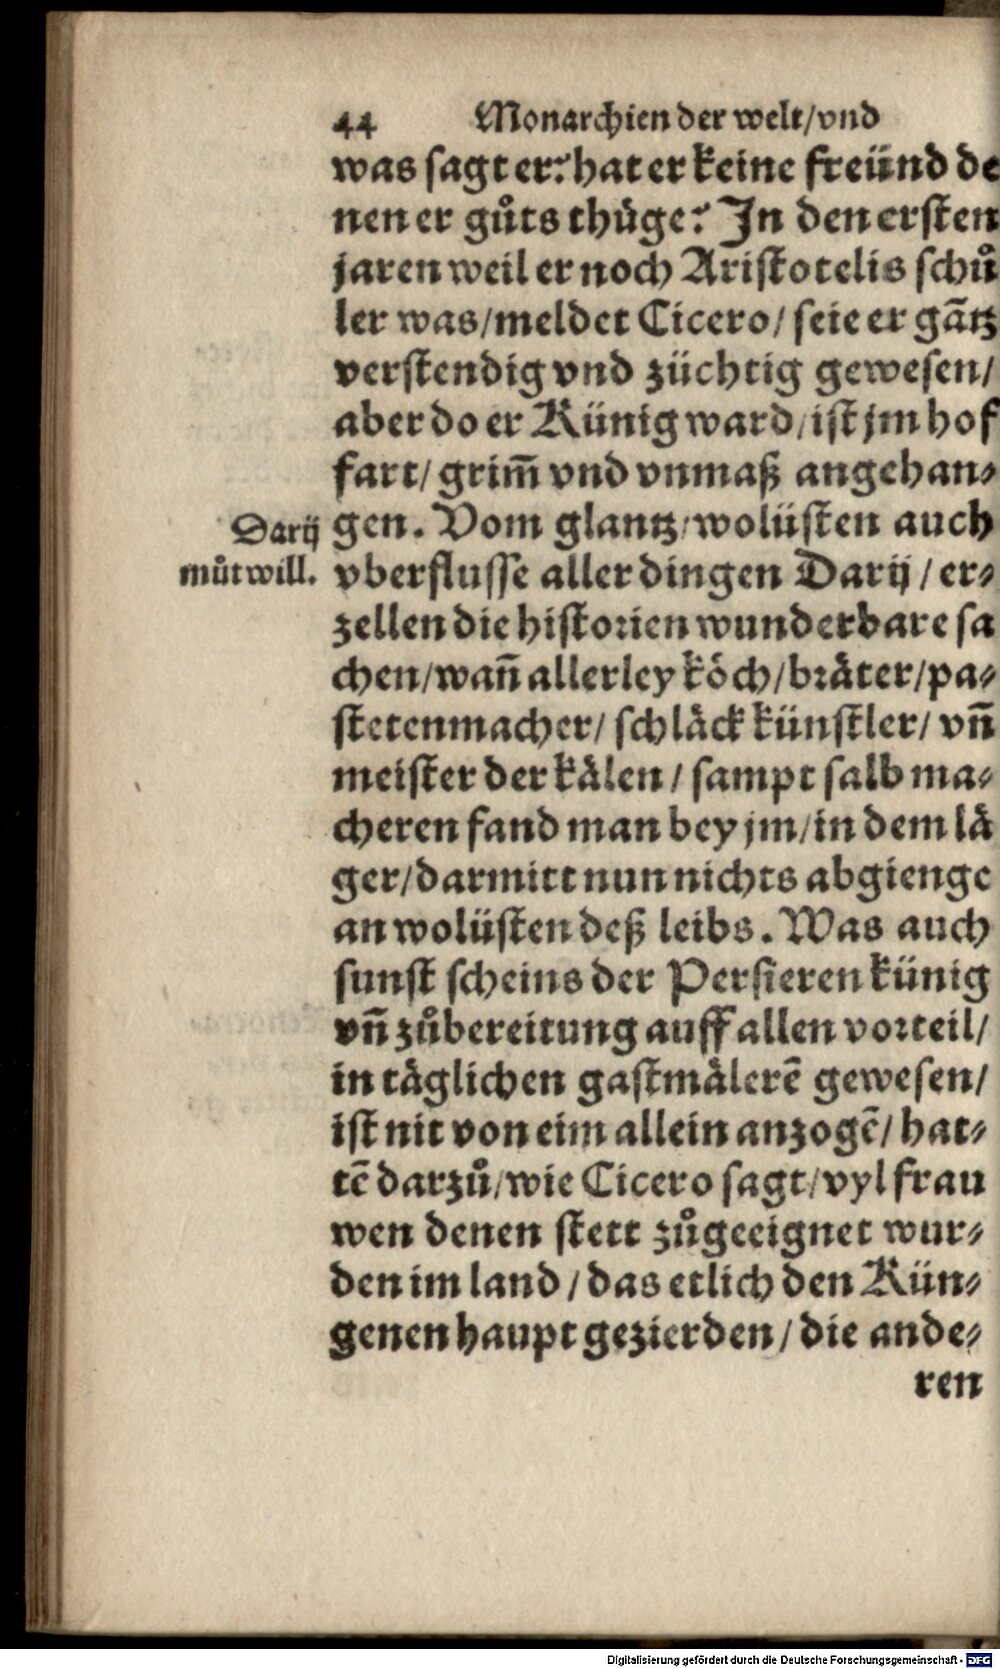 44 Monarchien der welt/vnd
was sagt er? hat er keine freünd de
nen er gůts thüge? In den ersten
jaren weil er noch Aristotelis schů
ler was/meldet Cicero/ seie er gãtz
verstendig vnd züchtig gewesen/
aber do er Künig ward/ist jm hof
fart/ grim̃ vnd vnmaß angehan⸗
Darij
můtwill.
gen. Vom glantz/wolüsten auch
vberflusse aller dingen Darij/ er⸗
zellen die historien wunderbare sa
chen/wañ allerley köch/bräter/pa⸗
stetenmacher/ schläck künstler/ vñ
meister der kälen/ sampt salb ma⸗
cheren fand man bey jm/in dem lä
ger/darmitt nun nichts abgienge
an wolüsten deß leibs. Was auch
sunst scheins der Persieren künig
vñ zůbereitung auff allen vorteil/
in täglichen gastmälerẽ gewesen/
ist nit von eim allein anzogẽ/ hat⸗
tẽ darzů/wie Cicero sagt/vyl frau
wen denen stett zůgeeignet wur⸗
den im land/das etlich den Kün⸗
genen haupt gezierden/die ande⸗
ren
Digitalisierung gefördert durch die Deutsche Forschungsgemeinschaft - DFG